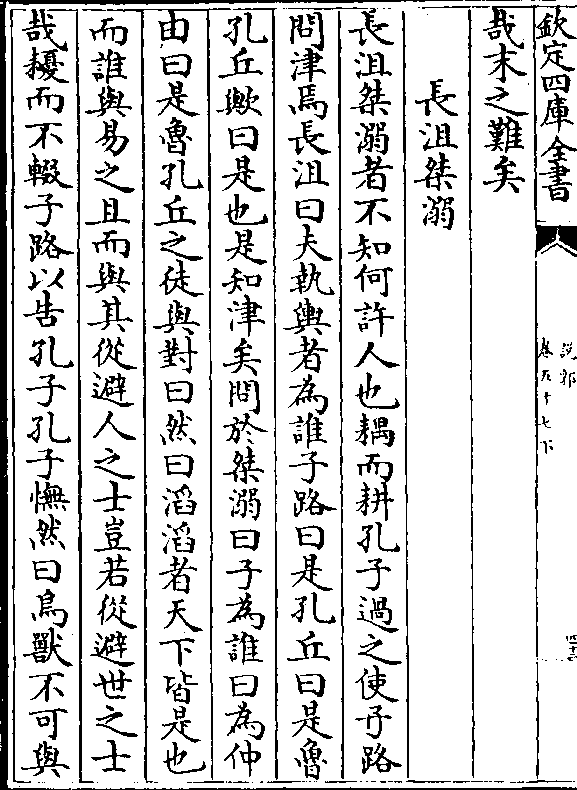 欽定四庫全書
說郛
卷五十七下
哉末之難矣
長沮桀溺
長沮桀溺者不知何許人也耦而耕孔子過之使子路
問津焉長沮曰夫執輿者為誰子路曰是孔丘曰是魯
孔丘歟曰是也是知津矣問於桀溺曰子為誰曰為仲
由曰是魯孔丘之徒與對曰然曰滔滔者天下皆是也
而誰與易之且而與其從避人之士豈若從避世之士
哉耰而不輟子路以告孔子孔子憮然曰鳥獸不可與